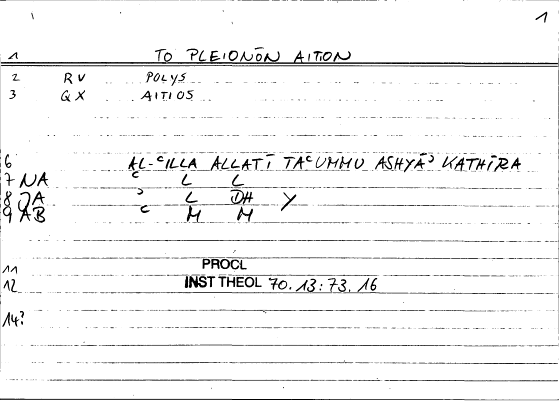 1
1 TO PLEIONŌN AITION
2 RV POLYS
3 QX AITIOS
6 AL-ᶜILLA ALLATĪ TAᶜUMMU ASHYĀʾ KATHĪRA
7 NA ᶜ L L
8 JA ʾ L DH Y
9 AB ᶜ M M
11 PROCL
12 INST THEOL 70.13:73.16
14?